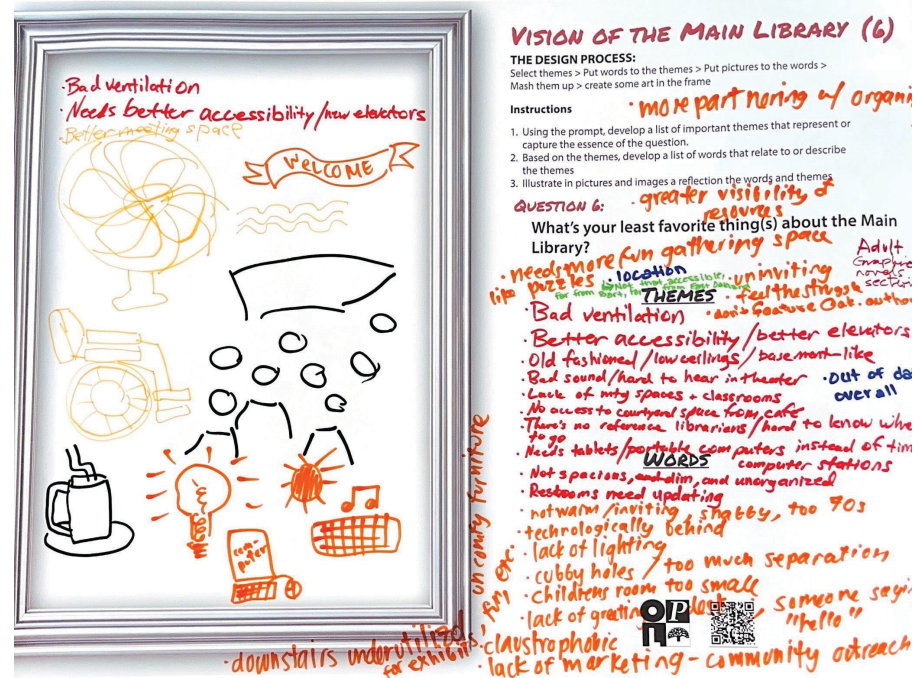 · Bad ventilation
· Needs better accessibility/new elevators
· Better meeting space
WELCOME
com-
puter
VISION OF THE MAIN LIBRARY (6)
THE DESIGN PROCESS:
Select themes > Put words to the themes > Put pictures to the words >
Mash them up > create some art in the frame
Instructions
· more partnering w/ organi
1. Using the prompt, develop a list of important themes that represent or
capture the essence of the question.
2. Based on the themes, develop a list of words that relate to or describe
the themes
3. Illustrate in pictures and images a reflection the words and themes
· greater visibility of
resources
QUESTION 6:
What's your least favorite thing(s) about the Main
Library?
· needs more fun gathering space
like puzzles
· location
Not that accessible,
far from Bart, far from East Oakland
· uninviting
Adult
Graphic
novels
section
THEMES
· feel the strugg
· don't feature Oak. author
· Bad ventilation
· Better accessibility/better elevators
· Old fashioned/low ceilings/basement-like
· Bad sound/hard to hear in theater
· out of da
overall
· Lack of mtg spaces + classrooms
· No access to courtyard space from cafe
· There's no reference librarians/hard to know whe
to go
· Needs tablets/portable computers instead of tim
computer stations
WORDS
· Not spacious, and dim, and unorganized
· Restrooms need updating
· not warm/inviting, shabby, too 70s
· technologically behind
· lack of lighting
· cubby holes / too much separation
· childrens room too small
· lack of greeting desk, someone sayi
"hello"
OPL
· claustrophobic
· lack of marketing - community outreach
uncomfy furniture
· downstairs underutilized
for exhibits, film etc.